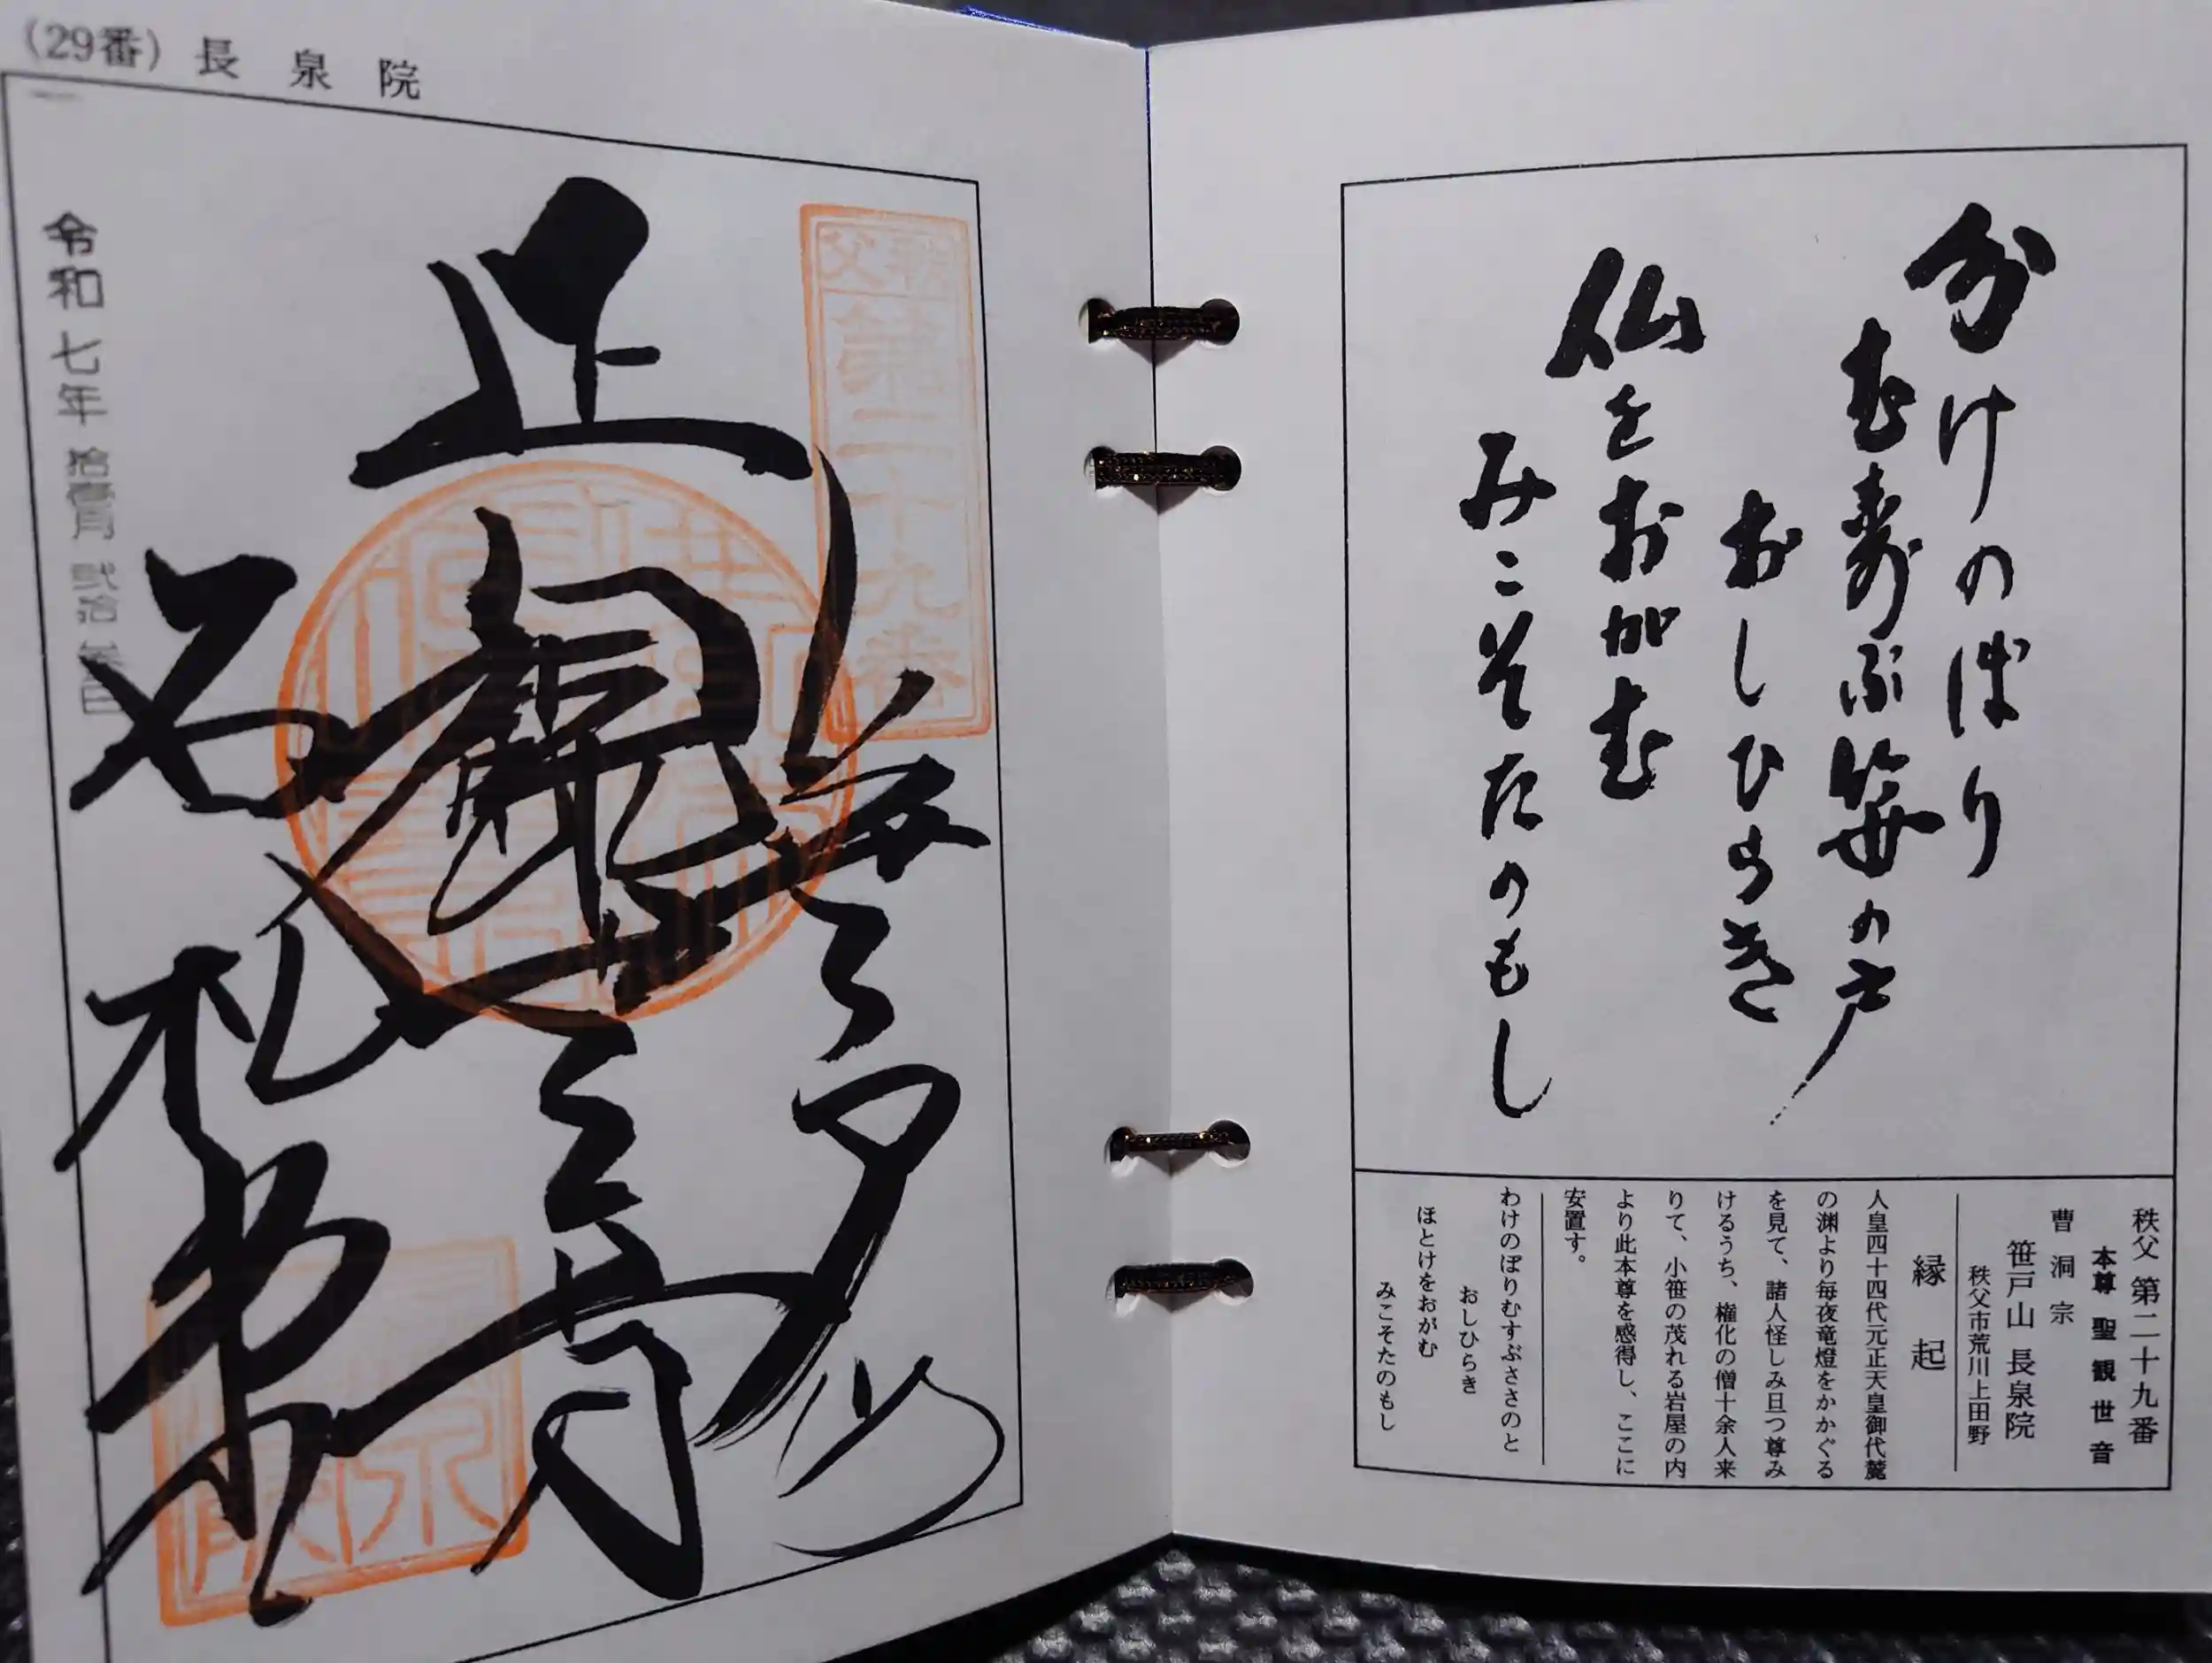 (29番) 長泉院
令和七年 拾壹月 弐拾参日
秩父
第二十九番
正観世音
石札堂
分けのぼり
むすぶ笹の戸
おしひらき
仏をおがむ
みこそたのもし
秩父 第二十九番
本尊 聖観世音
曹洞宗
笹戸山 長泉院
秩父市荒川上田野
縁起
人皇四十四代元正天皇御代麓
の渕より毎夜竜燈をかかぐる
を見て、諸人怪しみ且つ尊み
けるうち、権化の僧十余人来
りて、小笹の茂れる岩屋の内
より此本尊を感得し、ここに
安置す。
わけのぼりむすぶささのと
おしひらき
ほとけをおがむ
みこそたのもし